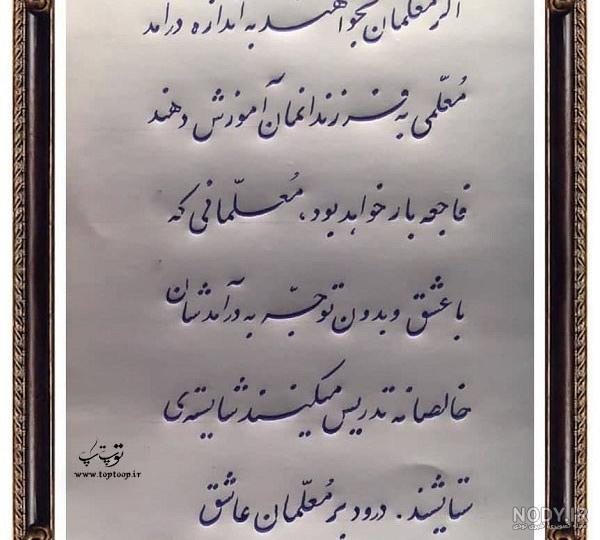 اگر معلمان بخواهند به اندازه درآمد
مُعلّمی به فرزندانمان آموزش دهند
فاجعه بار خواهد بود، مُعلّمانی که
با عشق و بدون توجّه به درآمدشان
خالصانه تدریس میکنند شایسته‌ی
ستایشند. درود بر مُعلّمان عاشق
توپ تاپ
www.toptoop.ir
NODY.IR